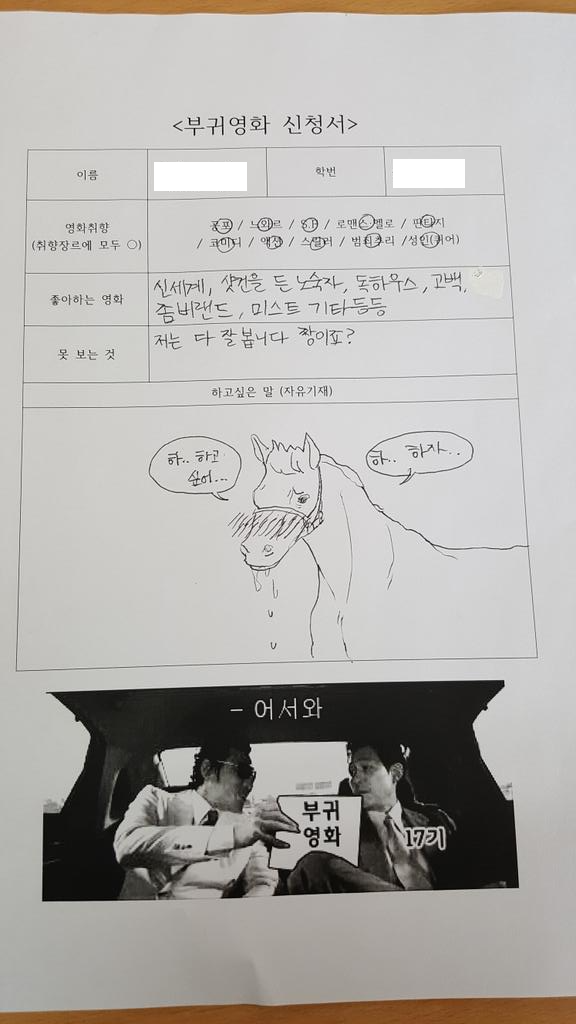 <부귀영화 신청서>
이름
학번
영화취향
(취향장르에 모두 ○)
공포 / 느와르 / S.F / 로맨스·멜로 / 판타지
/ 코미디 / 액션 / 스릴러 / 범죄추리 / 성인(퀴어)
좋아하는 영화
신세계, 샷건을 든 노숙자, 독하우스, 고백,
좀비랜드, 미스트 기타등등
못 보는 것
저는 다 잘봅니다 짱이죠?
하고싶은 말 (자유기재)
하.. 하고
싶어...
하.. 하자..
- 어서와
부귀
영화
17기